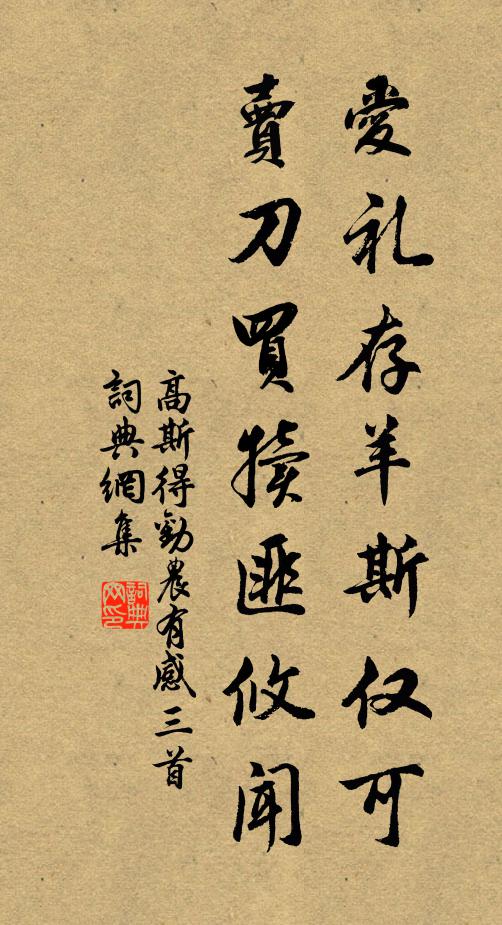 愛礼存羊斯仅可
賣刀買犢匪攸闻
高斯得勸農有感三首
詞典網集
詞典网印